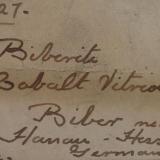 27.
Biberite
Cobalt Vitrio
Biber ne
Hanau - Hess
German